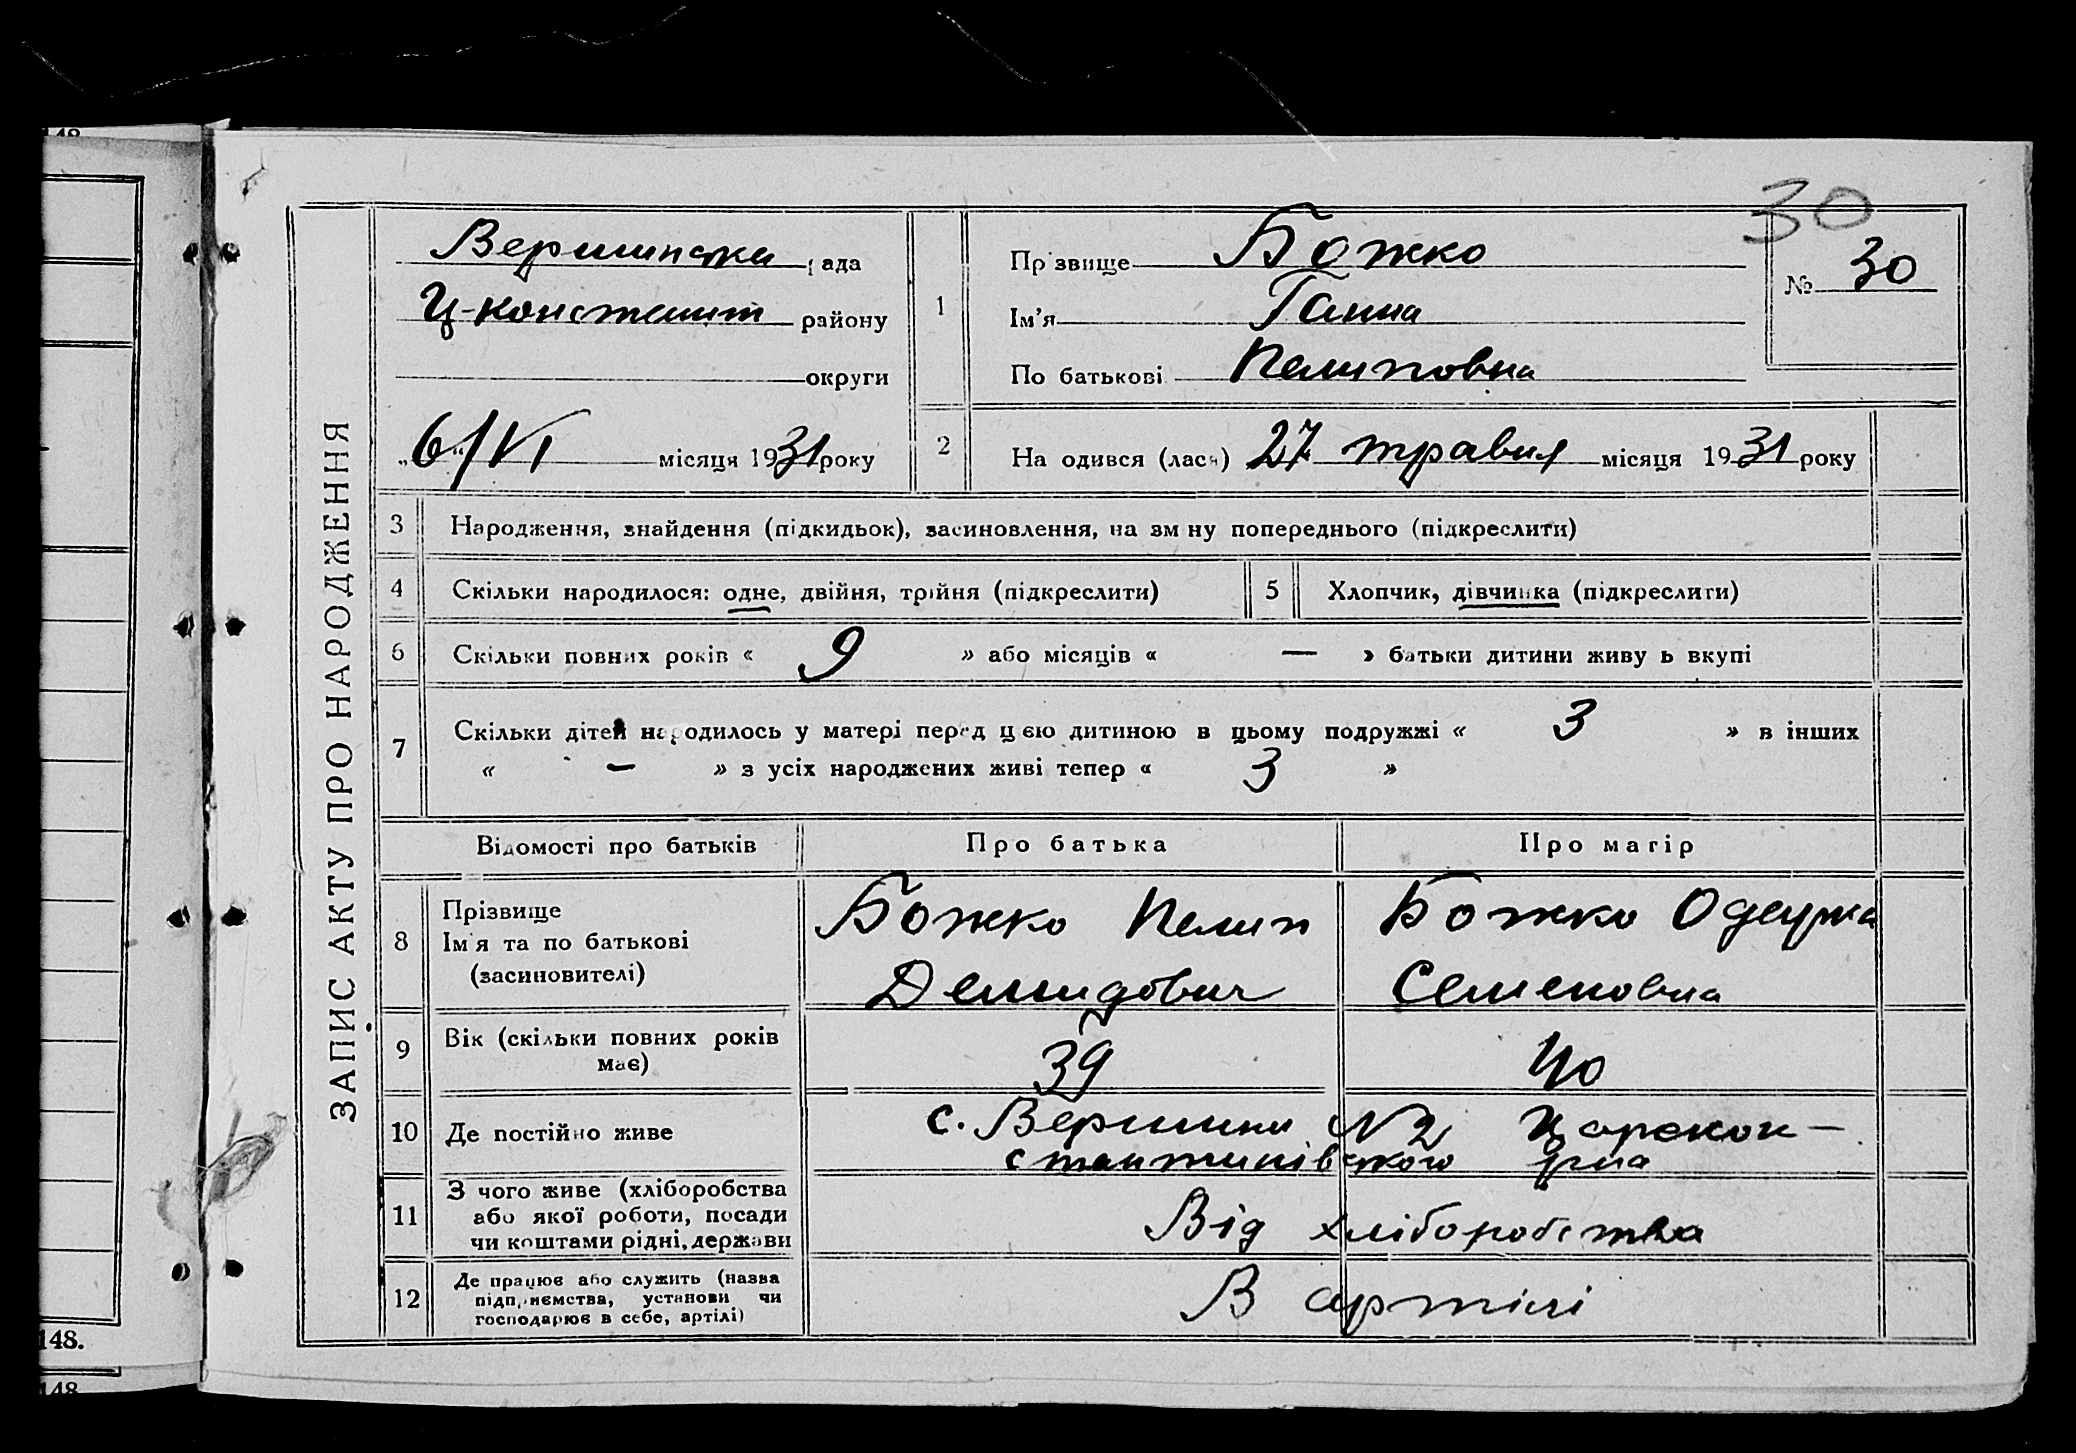 30
Вершинська рада
Ц-констант району
округи
„6“/VI місяця 1931 року
1
Прізвище Божко
Ім'я Ганна
По батькові Пелиповна
№ 30
2
На одився (лася) 27 травня місяця 1931 року
ЗАПИС АКТУ ПРО НАРОДЖЕННЯ
3 Народження, знайдення (підкидьок), засиновлення, на зм ну попереднього (підкреслити)
4 Скільки народилося: одне, двійня, трійня (підкреслити)
5 Хлопчик, дівчинка (підкреслити)
6 Скільки повних років « 9 » або місяців « — » батьки дитини живу ь вкупі
7 Скільки дітей народилось у матері перед цією дитиною в цьому подружжі « 3 » в інших
« — » з усіх народжених живі тепер « 3 »
Відомості про батьків
Про батька
Про матір
8 Прізвище
Ім'я та по батькові
(засиновителі)
Божко Пелип
Демидович
Божко
Семеновна
9 Вік (скільки повних років
має)
39
40
10 Де постійно живе
с. Вершини N2 Царекон-
стантинівського р-на
11 З чого живе (хліборобства
або якої роботи, посади
чи коштами рідні, держави
Від хліборобства
12 Де працює або служить (назва
підприємства, установи чи
господарює в себе, артілі)
В артілі
148.
148
148